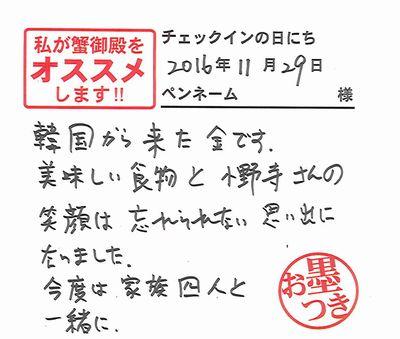 私が蟹御殿を
オススメ
します!!
チェックインの日にち
2016年11月29日
ペンネーム 様
韓国から来た金です.
美味しい食物と小野寺さんの
笑顔は忘れられない思い出に
なりました.
今度は家族四人と
一緒に.
お墨つき